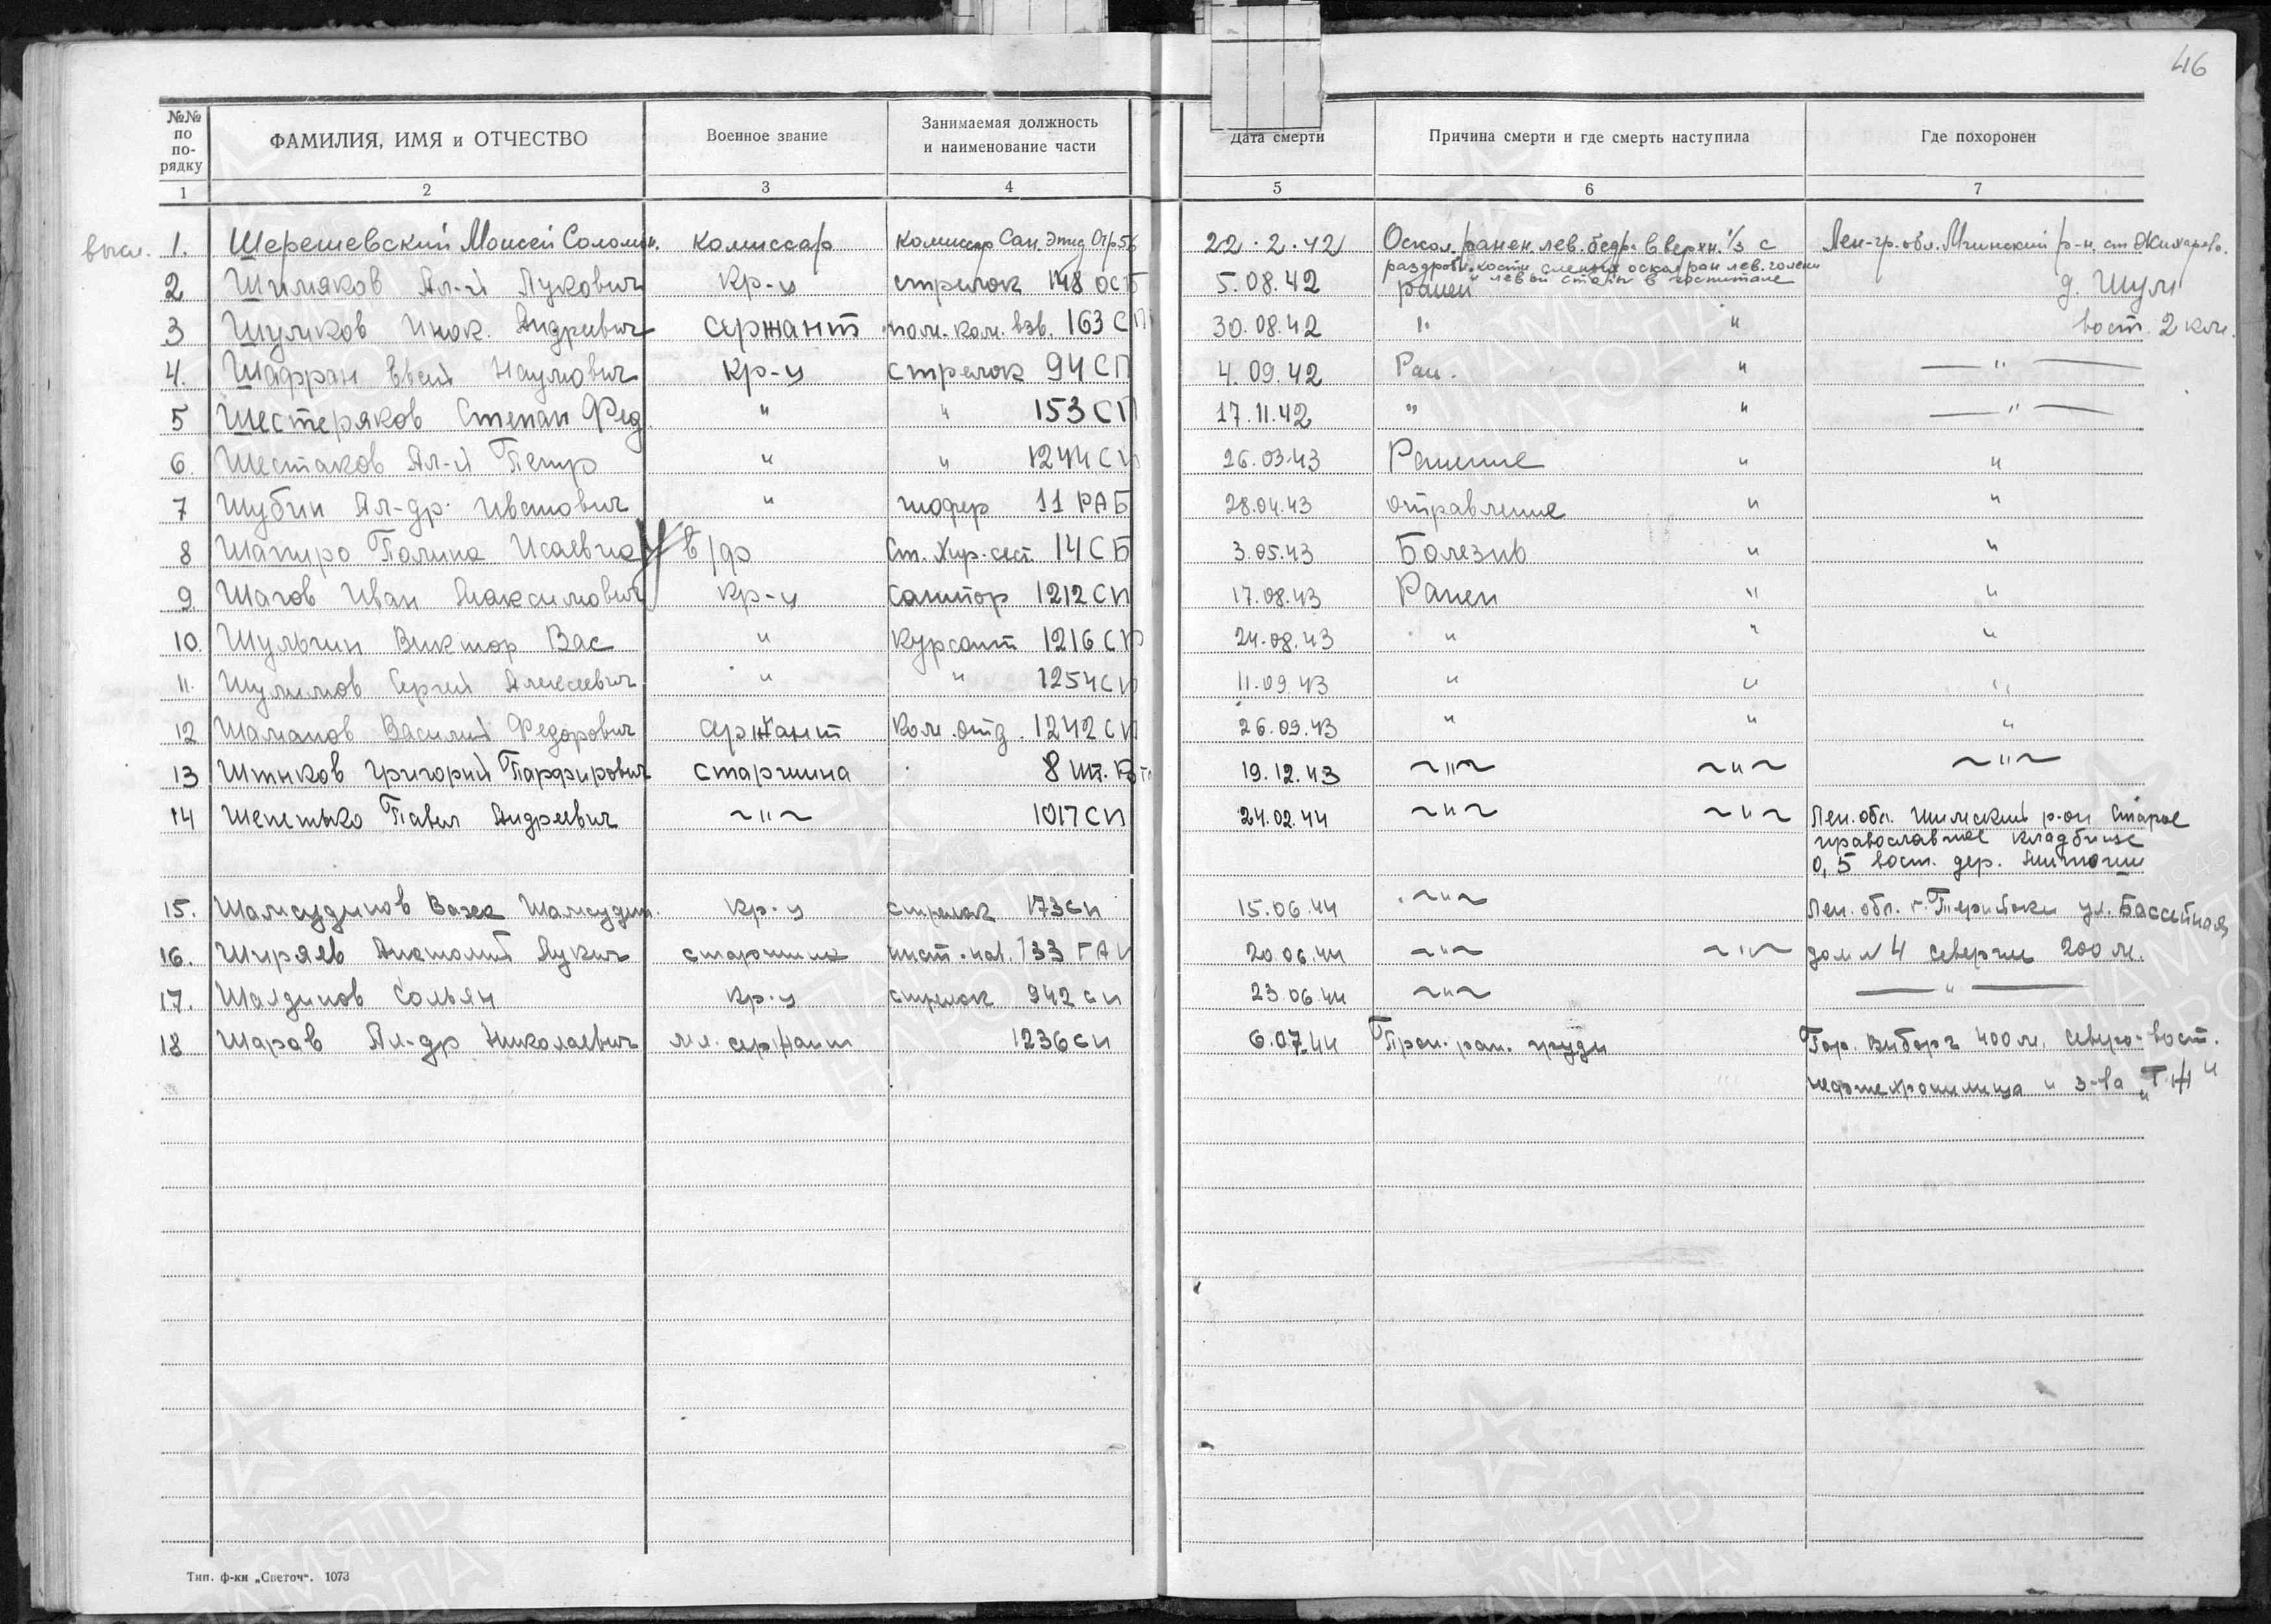 46
№№ по по-рядку
ФАМИЛИЯ, ИМЯ и ОТЧЕСТВО
Военное звание
Занимаемая должность и наименование части
Дата смерти
Причина смерти и где смерть наступила
Где похоронен
1 2 3 4 5 6 7
1. Шерешевский Моисей Соломон. комиссар комиссар Сан. Эпид Отр 56 22.2.42 Оскол. ранен. лев. бедра в верхн. 1/3 с Лен-гр. обл. Мгинский р-н. ст Жихарево.
раздробл. кости слепые оскол ран лев. голени
и левой стопы в госпитале
2 Шимяков Ал-й Лукович кр-ц стрелок 148 ОСБ 5.08.42 ранен д. Шум
3 Шумков Инок. Андреевич сержант пом. ком. взв. 163 СП 30.08.42 " " вост. 2 км.
4. Шафран Наумович кр-ц стрелок 94 СП 4.09.42 Ран. " — " —
5 Шестеряков Степан Фед " " 153 СП 17.11.42 " " — " —
6. Шестаков Ал-й Петр " " 1244 СП 26.03.43 Ранение " "
7 Шубин Ал-др. Иванович " шофер 11 РАБ 28.04.43 отравление " "
8 Шапиро Полина Исаевна в/ф Ст. Хир. сест. 14 СБ 3.05.43 Болезнь " "
9. Шагов Иван Максимович кр-ц санитар 1212 СП 17.08.43 Ранен " "
10. Шульгин Виктор Вас " курсант 1216 СП 24.08.43 " " "
11. Шулимов Сергей Алексеевич " " 1254 СП 11.09.43 " " "
12 Шаманов Василий Федорович сержант Ком. отд. 1242 СП 26.09.43 " " "
13 Штыков Григорий Парфирович старшина 8 шт. 19.12.43 ~"~ ~"~ ~"~
14 Шепетько Павел Андреевич ~"~ 1017 СП 24.02.44 ~"~ ~"~ Лен. обл. Шимский р-он Старое
православное кладбище
0,5 вост. дер.
15. Шамсудинов Шамсудин. кр-ц стрелок 173 СП 15.06.44 ~"~ Лен. обл. г. Териоки ул. Бассейная
16. Ширяев Анатолий Лукич старшина 733 ГАП 20.06.44 ~"~ ~"~ дом N 4 севернее 200 м.
17. Шалдинов кр-ц стрелок 942 СП 23.06.44 ~"~ — " —
18 Шаров Ал-др Николаевич мл. сержант 1236 СП 6.07.44 Прон. ран. груди Гор. Выборг 400 м. северо-вост.
нефтехранилища и з-ва
Тип. ф-ки „Светоч“. 1073